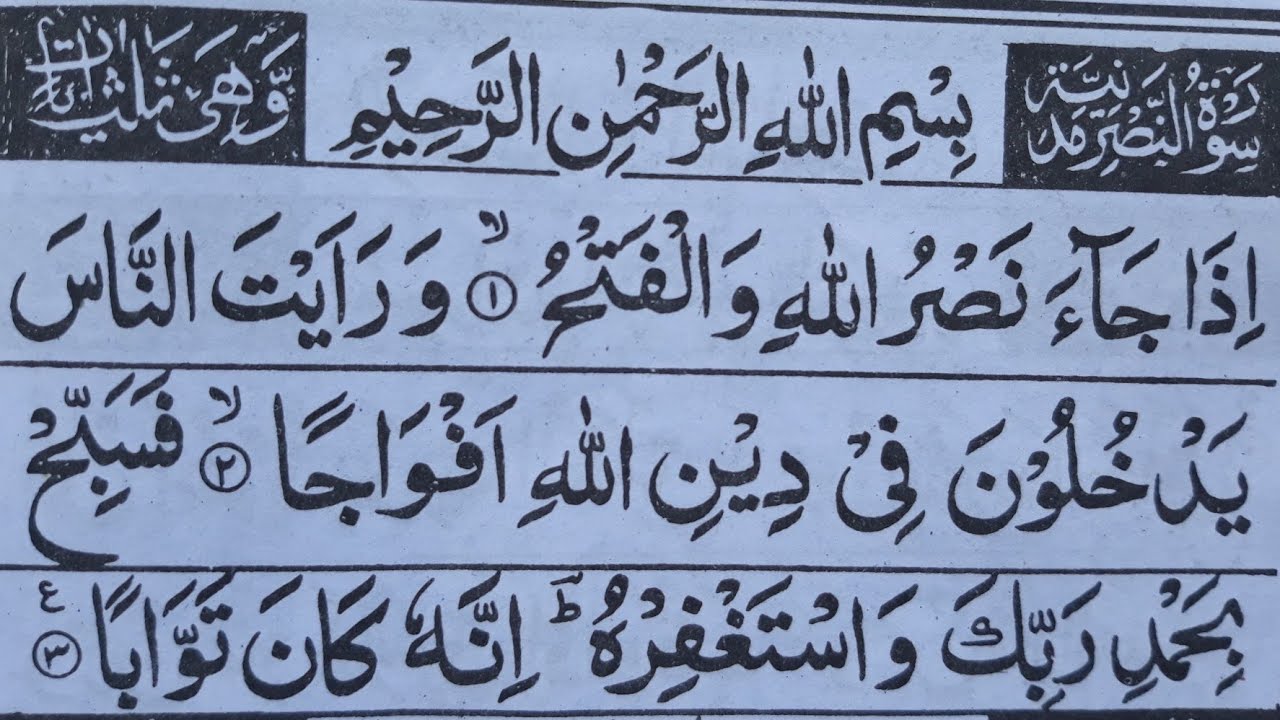 سُوْرَةُ النَّصْرِ مَدَنِيَّةٌ
بِسْمِ اللهِ الرَّحْمٰنِ الرَّحِيْمِ
وَّهِىَ ثَلٰثُ اٰيَاتٍ
اِذَا جَآءَ نَصْرُ اللهِ وَالْفَتْحُ ۙ﴿۱﴾ وَرَاَيْتَ النَّاسَ
يَدْخُلُوْنَ فِىْ دِيْنِ اللهِ اَفْوَاجًا ۙ﴿۲﴾ فَسَبِّحْ
بِحَمْدِ رَبِّكَ وَاسْتَغْفِرْهُ ؕ اِنَّهٗ كَانَ تَوَّابًا ﴿۳﴾ ع